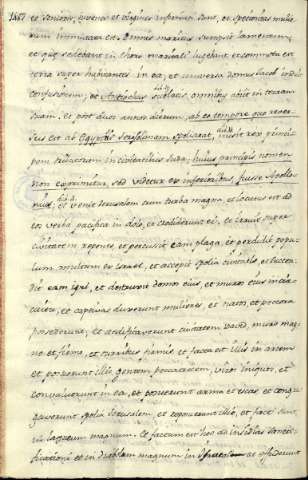 1887 et seniores, juvenes et virgines infirmati sunt, et speciositas mulie
rum immutata est. Omnis maritus sumpsit lamentum,
et quæ sedebant in thoro maritali lugebant et commota est
terra super habitantes in ea, et universa domus Jacob induit
confusionem; et Antiochus scilicet, omnibus ablatis in terram
suam, et post duos annos dierum, ab eo tempore quo rever
sus est ab Egypto Jerusalem spoliarat, misit rex princi
pem tributorum in civitates Juda; huius principis nomen
non exprimitur, sed videtur ex inferioribus, fuisse Apollo
nius, et venit Jerusalem cum turba magna, et locutus est ad
eos verba pacifica in dolo, et crediderunt ei, et irruit super
civitatem repente, et percussit eam plaga, et perdidit popu
lum multum ex Israel, et accepit spolia civitatis, et succen
dit eam igni, et destruxit domos eius, et muros eius in cir
cuitu, et captivas duxerunt mulieres, et natos et pecora
possederunt; et ædificaverunt civitatem David, muro mag
no et firmo, et turribus firmis et facta est illis in arcem
et posuerunt illic gentem peccatricem, viros iniquos, et
convaluerunt in ea, et posuerunt arma et escas, et congre
gaverunt spolia Jerusalem, et reposuerunt illic, et facti sunt
in laqueum magnum. et factum est hoc ad insidias sancti
ficationi et in diabolum magnum in Israel et effuderunt